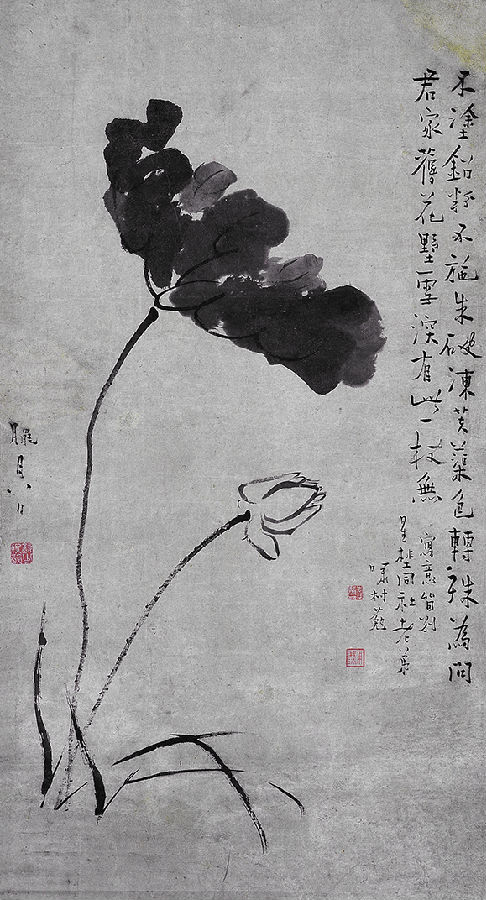 不塗鉛粉不施朱破凍芙蕖色轉殊為問
君家舊花墅雪深有此一枝無
寫意留別
星槎同社老哥
嘯村
臘月八日